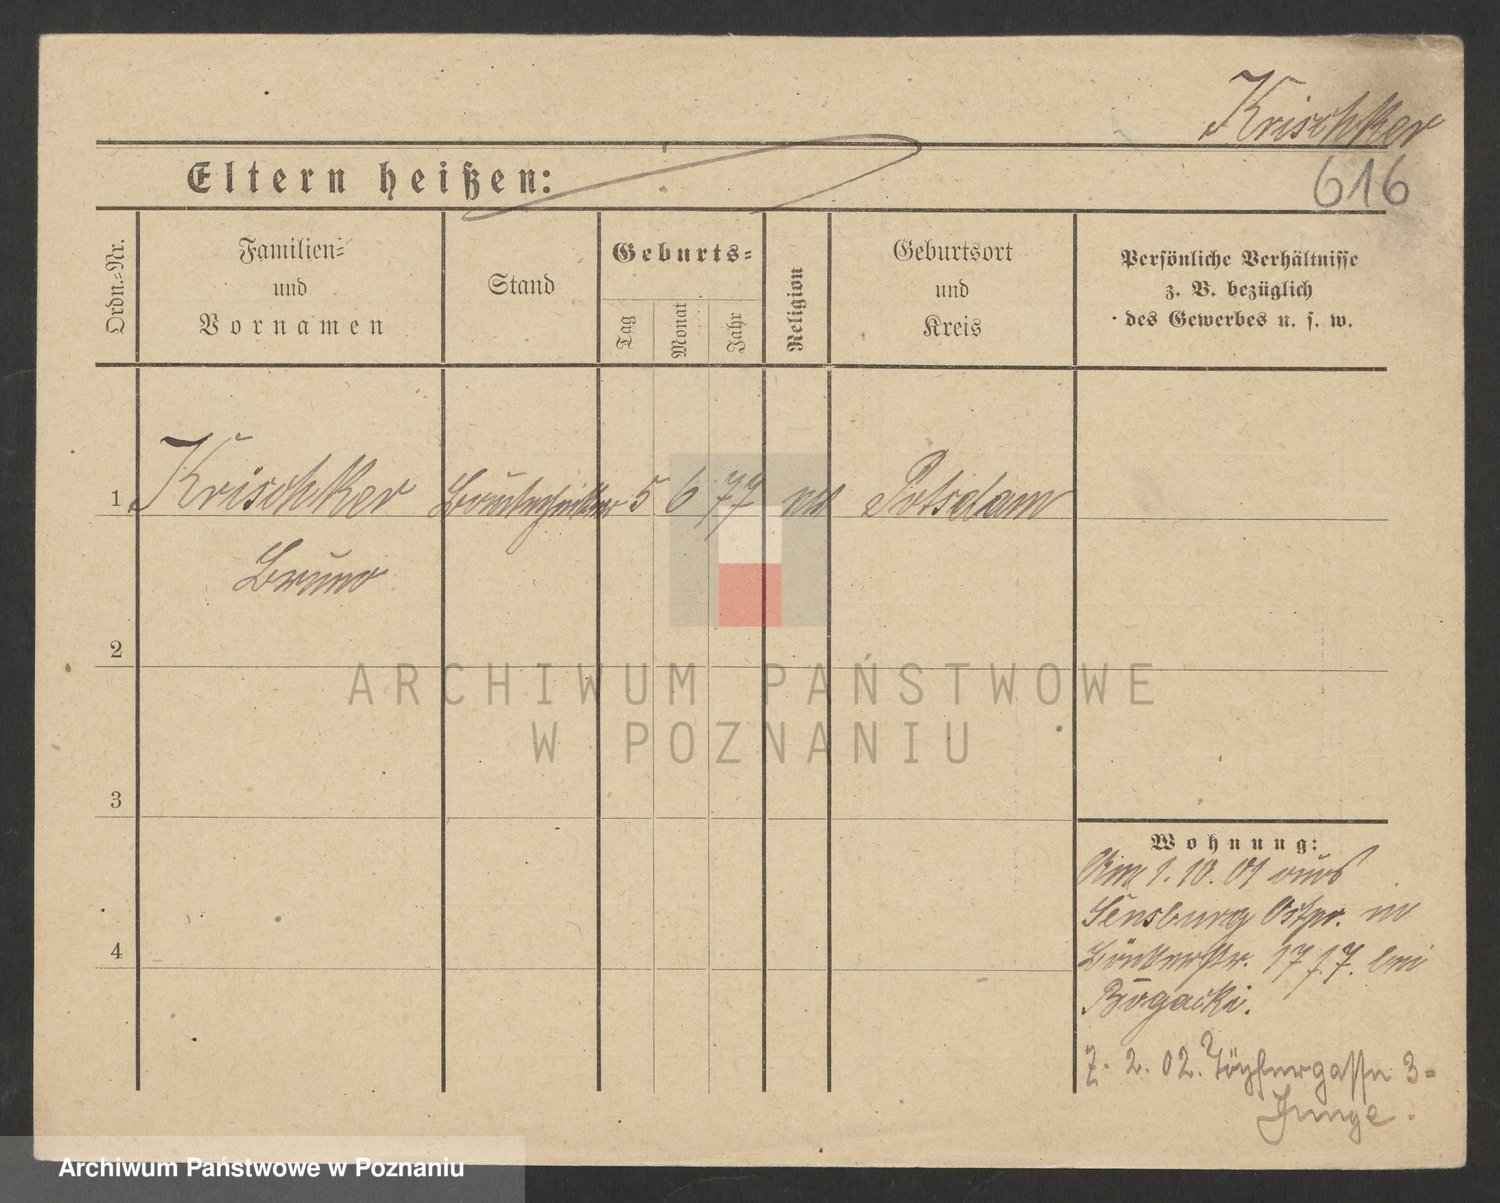 Krischker
616
Eltern heißen:
Ordn.-Nr.
Familien-
und
Vornamen
Stand
Geburts-
Tag
Monat
Jahr
Religion
Geburtsort
und
Kreis
Persönliche Verhältnisse
z. B. bezüglich
des Gewerbes u. s. w.
1 Krischker Bautechniker 5 6 77 Potsdam
Bruno
2
3
4
ARCHIWUM PAŃSTWOWE
W POZNANIU
Wohnung:
Am 1. 10. 01 aus
Sensburg Ostpr. in
17 bei
Bogacki.
7. 2. 02. Töpfergasse 3-
Junge.
Archiwum Państwowe w Poznaniu